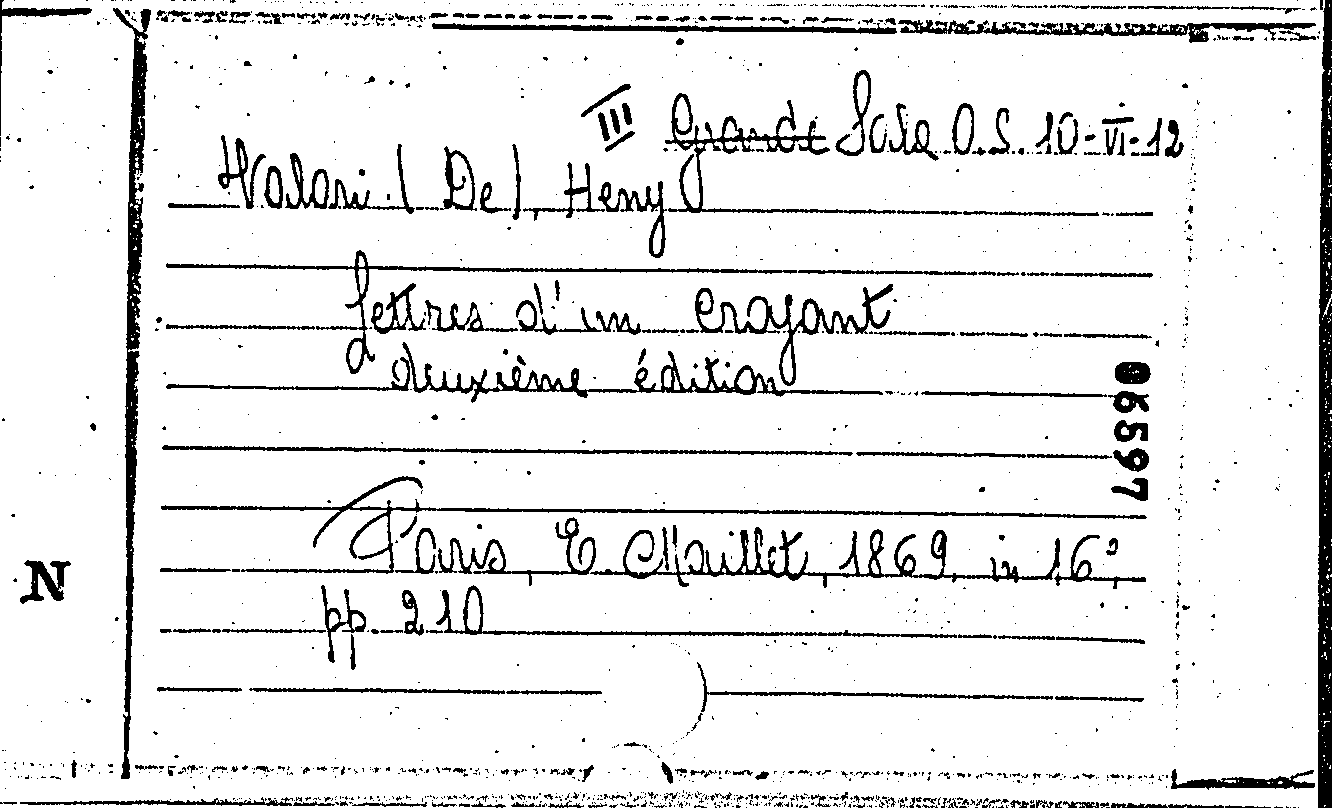 III Grande Sala O.S. 10-VI-12
Valori (De), Heny
Lettres d'un croyant
deuxième édition
06597
Paris, E. Maillet, 1869, in 16º,
N
pp. 210